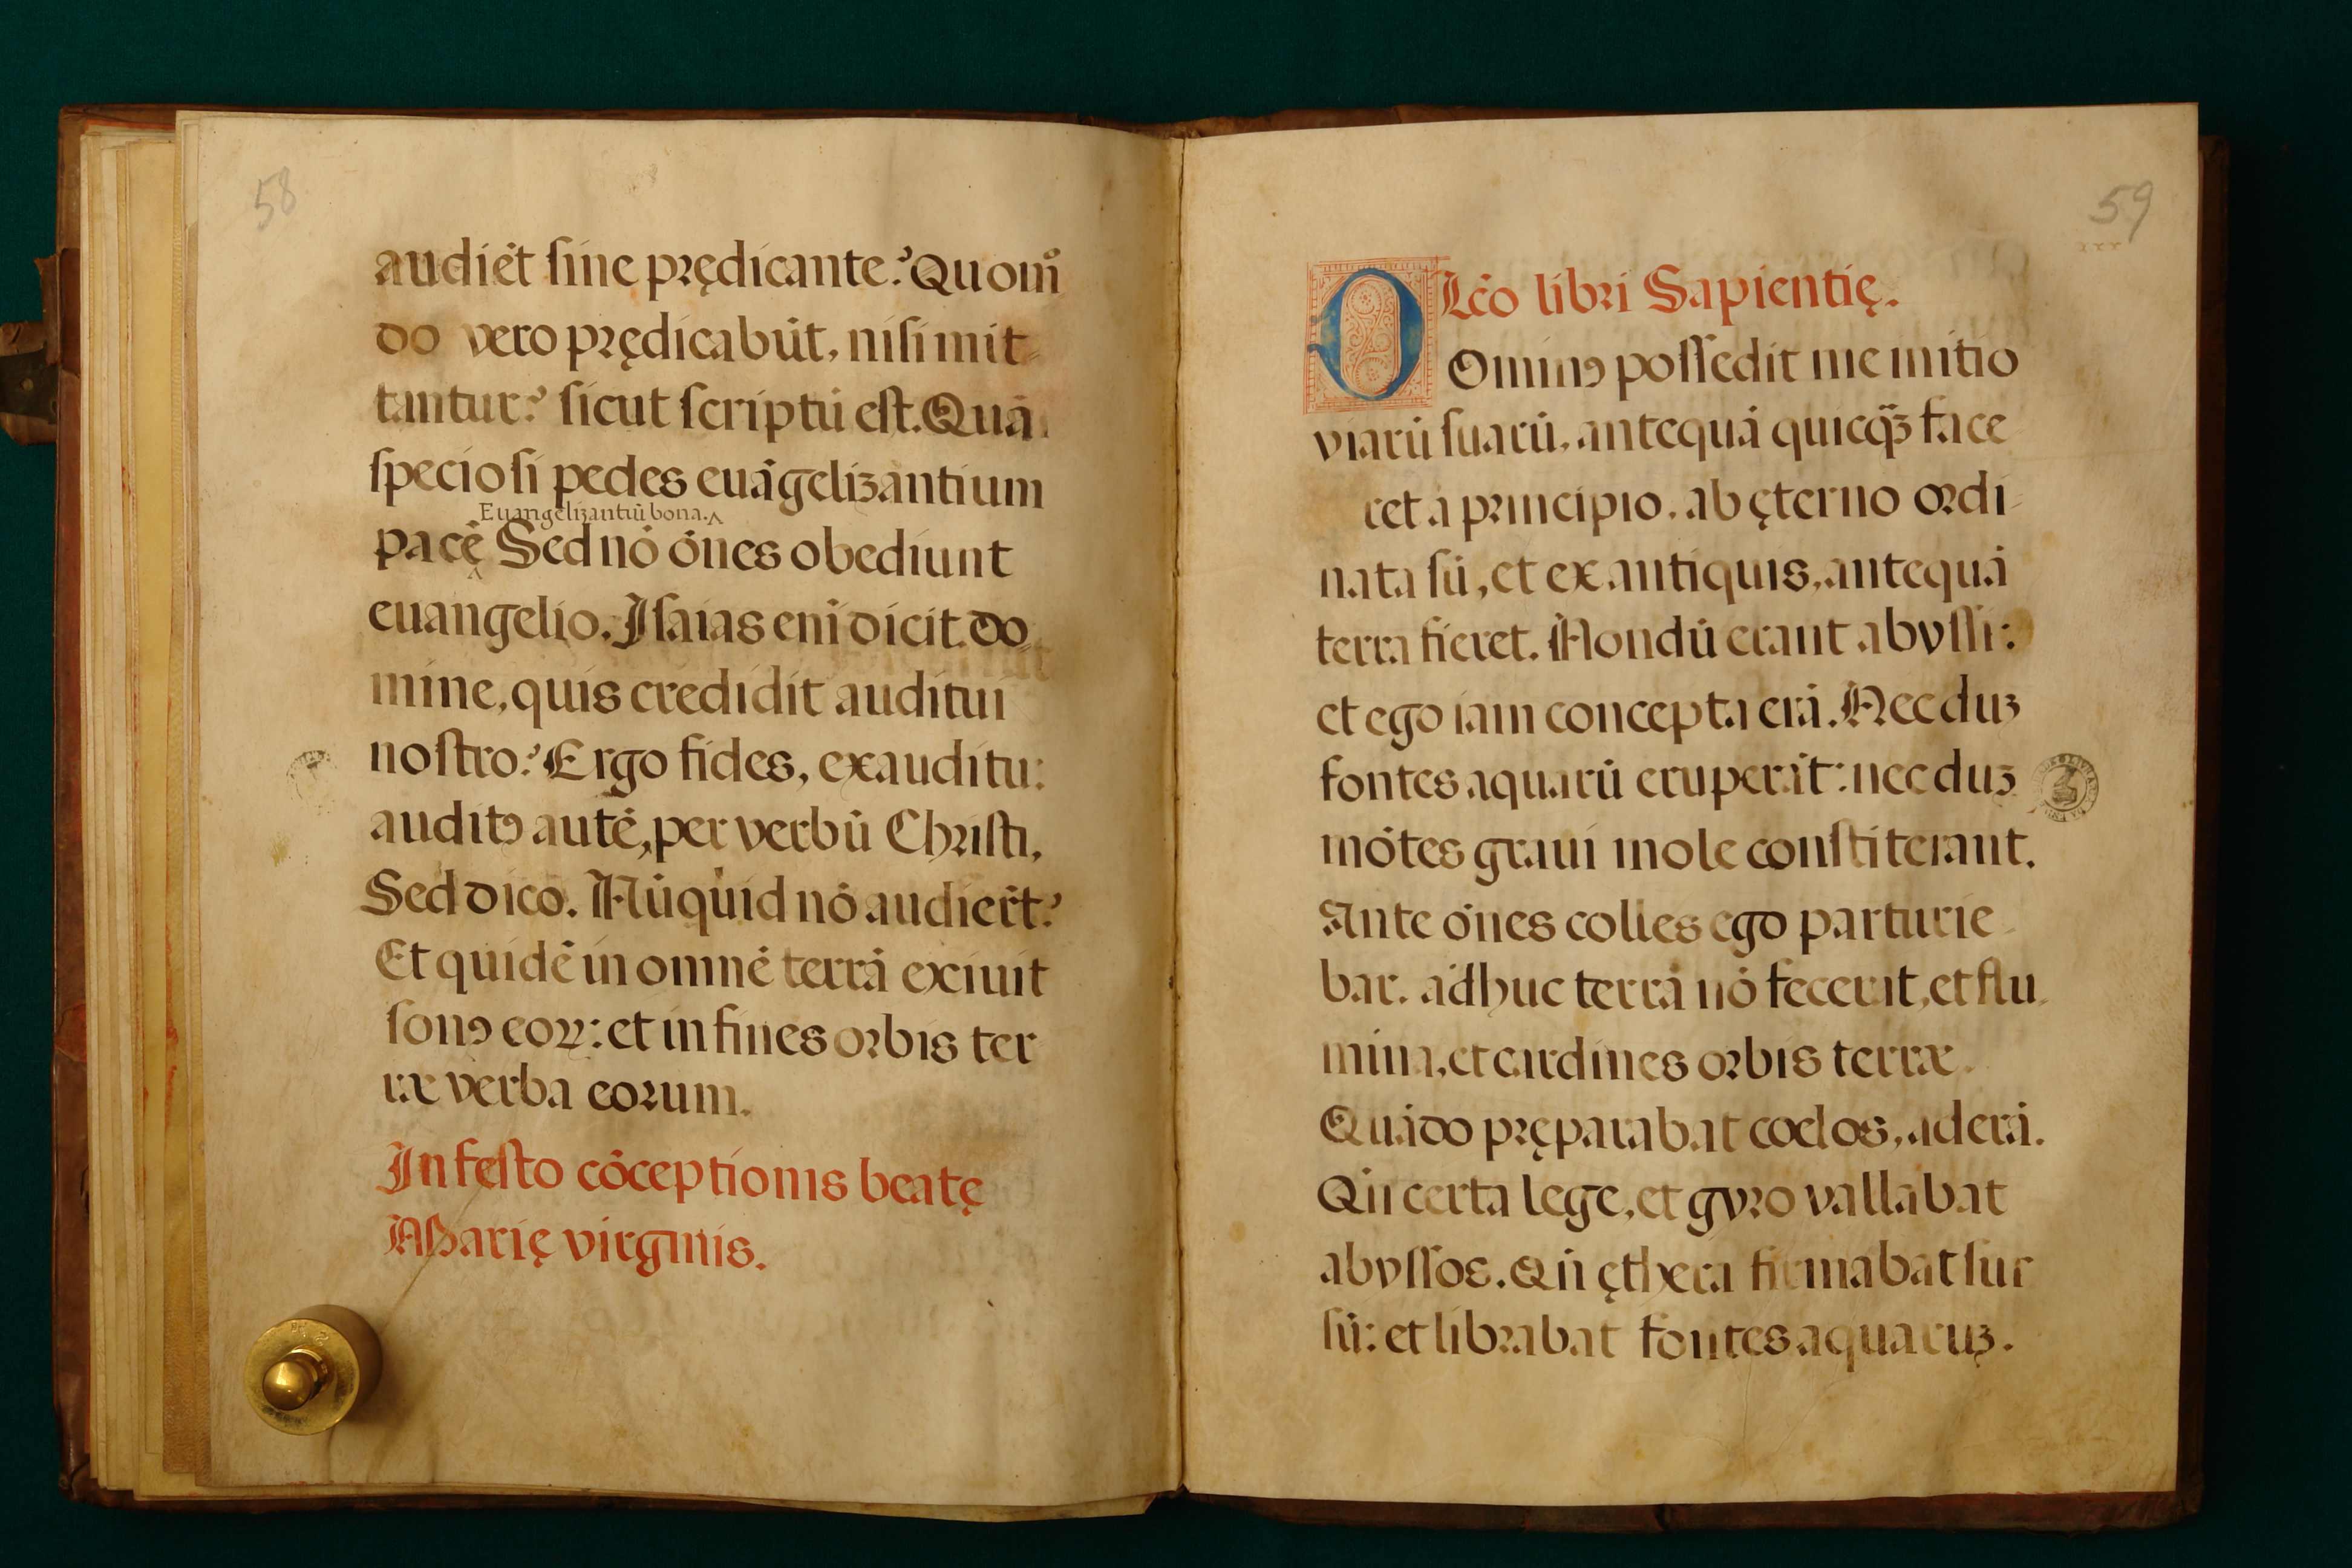 58
audiēt ſine prędicante? Quomº
do vero prędicabūt, niſi mit-
tantur? ſicut ſcriptū eſt. Quā
ſpecioſi pedes euāgelizantium
Euangelizantiū bona.
pacē Sed nō ōnes obediunt
euangelio. Iſaias eni̅ dicit. do
mine, quis credidit auditui
noſtro? Ergo fides, ex auditu:
auditꝰ autē, per verbū Chriſti.
Sed dico. Nūquid nō audierūt?
Et quidē in omnē terrā exiuit
ſonꝰ eoꝝ: et in fines orbis ter
ræ verba eorum.
In feſto cōceptionis beatę
Marię virginis.
59
xxx
Lc̄o libri Sapientię.
DOminꝰ poſſedit me initio
viarū ſuarū, antequā quicq̄ȝ face
ret a principio. ab ęterno ordi-
nata ſū, et ex antiquis, antequā
terra fieret. Nondū erant abyſſi:
et ego iam concepta erā. Nec duȝ
fontes aquarū eruperāt: nec duȝ
mōtes graui mole conſtiterant.
Ante ōnes colles ego parturie-
bar. adhuc terrā nō fecerat, et flu-
mina, et cardines orbis terræ.
Quādo pręparabat coelos, aderā.
Qn̄ certa lege, et gyro vallabat
abyſſos. Qn̄ ęthera firmabat ſur
ſū: et librabat fontes aquaruȝ.